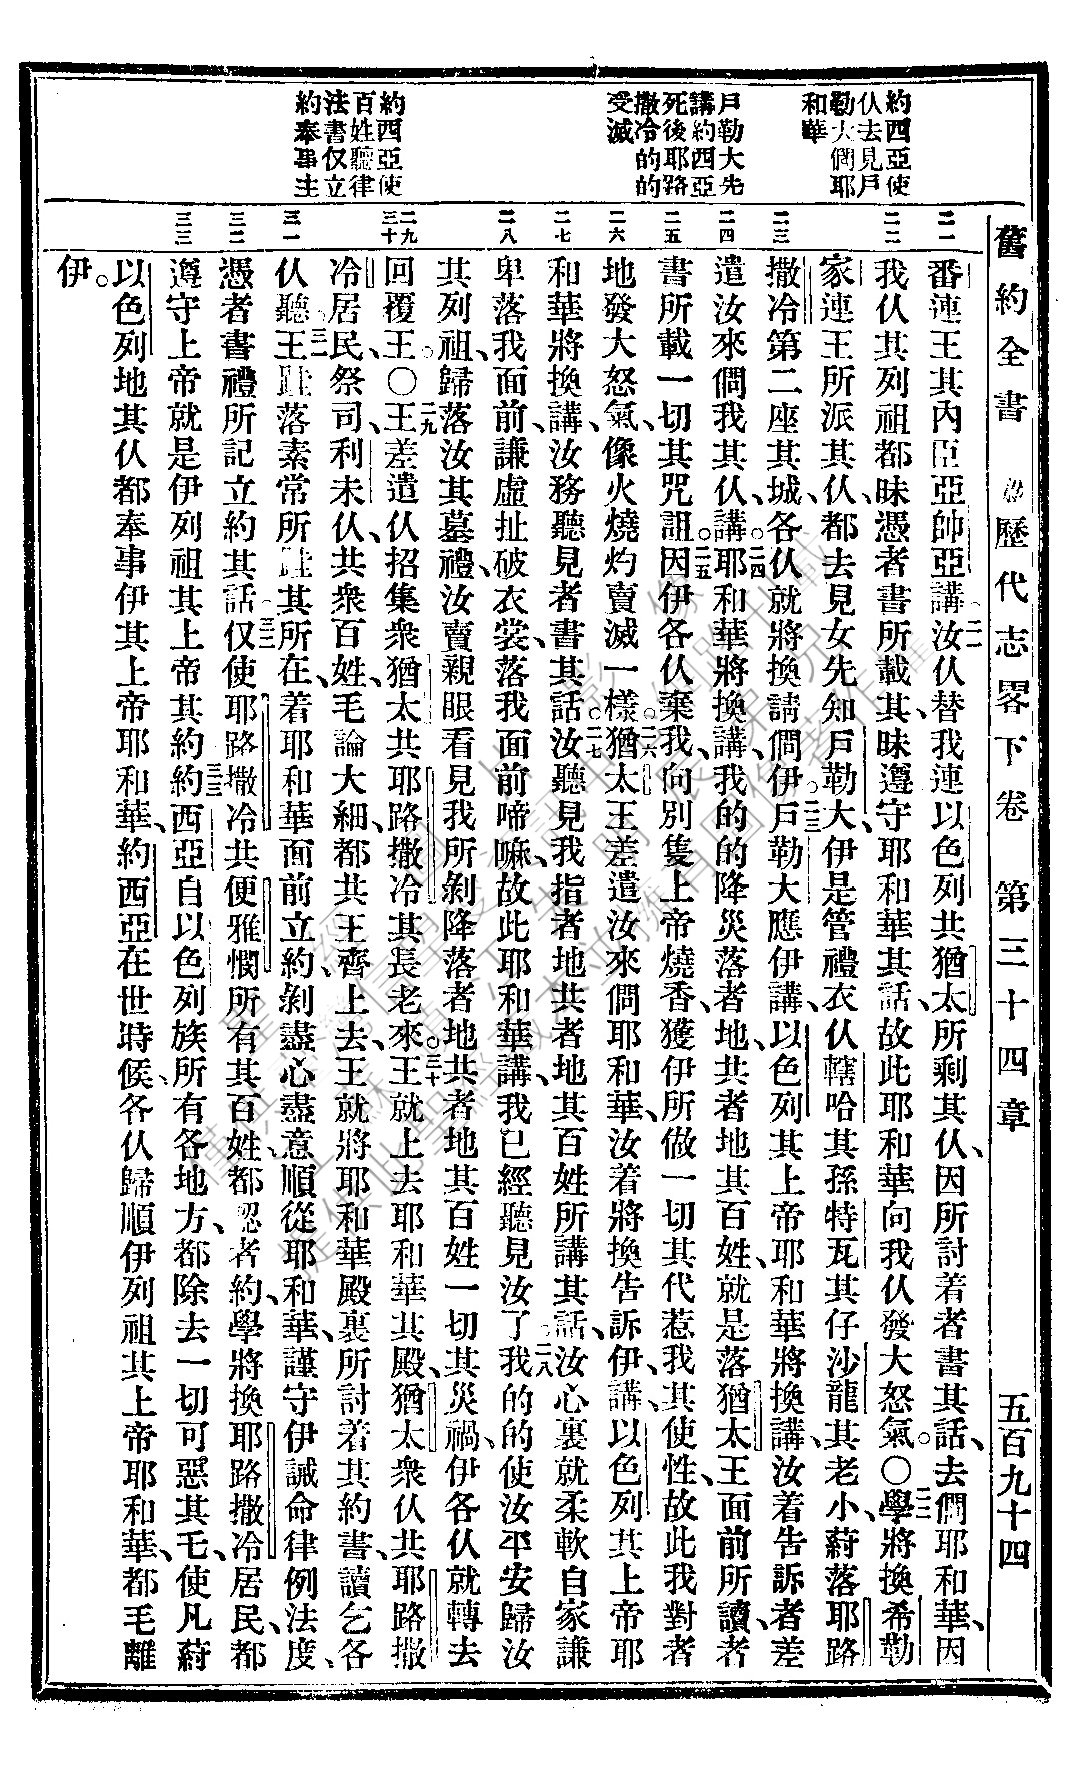 舊約全書 歷代志畧下卷 第三十四章 五百九十四
約西亞使
仈去見戶
勒大倜耶
和華
戶勒大先
講約西亞
死後耶路
撒冷的的
受滅
約西亞使
百姓聽律
法書仅立
約奉事主
二一
二二
二三
二四
二五
二六
二七
二八
二九
三十
三一
三二
三三
番連王其內臣亞帥亞講二一汝仈替我連以色列共猶太所剩其仈、因所討着者書其話、去倜耶和華、因
我仈其列祖都昧憑者書所載其、昧遵守耶和華其話、故此耶和華向我仈發大怒氣。○二二學將換希勒
家連王所派其仈、都去見女先知戶勒大、伊是管禮衣仈轄哈其孫特瓦其仔沙龍其老小、蔚落耶路
撒冷第二座其城、各仈就將換請倜伊。二三戶勒大應伊講、以色列其上帝耶和華將換講、汝着告訴者差
遣汝來倜我其仈、講。二四耶和華將換講、我的的降災落者地、共者地其百姓、就是落猶太王面前所讀者
書所載一切其咒詛。二五因伊各仈棄我、向別隻上帝燒香、獲伊所做一切其代惹我其使性、故此我對者
地發大怒氣、像火燒灼賣滅一樣。二六猶太王差遣汝來倜耶和華、汝着將換告訴伊、講、以色列其上帝耶
和華將換講、汝務聽見者書其話、二七汝聽見我指者地共者地其百姓所講其話、汝心裏就柔軟自家謙
卑落我面前、謙虛扯破衣裳、落我面前啼嘛、故此耶和華講、我已經聽見汝了。二八我的的使汝平安歸汝
其列祖、歸落汝其墓禮、汝賣親眼看見我所剝降落者地共者地其百姓一切其災禍、伊各仈就轉去
回覆王。○二九王差遣仈招集衆猶太共耶路撒冷其長老來。三十王就上去耶和華其殿、猶太衆仈共耶路撒
冷居民、祭司、利未仈、共衆百姓、毛論大細、都共王齊上去、王就將耶和華殿裏所討着其約書、讀乞各
仈聽。三一王跬落素常所跬其所在、着耶和華面前立約、剝盡心盡意順從耶和華、謹守伊誡命律例法度、
憑者書禮所記立約其話。三二仅使耶路撒冷共便雅憫所有其百姓、都認者約、學將換耶路撒冷居民、都
遵守上帝就是伊列祖其上帝其約。三三約西亞自以色列族所有各地方、都除去一切可惡其乇、使凡蔚
以色列地其仈都奉事伊其上帝耶和華、約西亞在世時候、各仈歸順伊列祖其上帝耶和華、都毛離
伊。